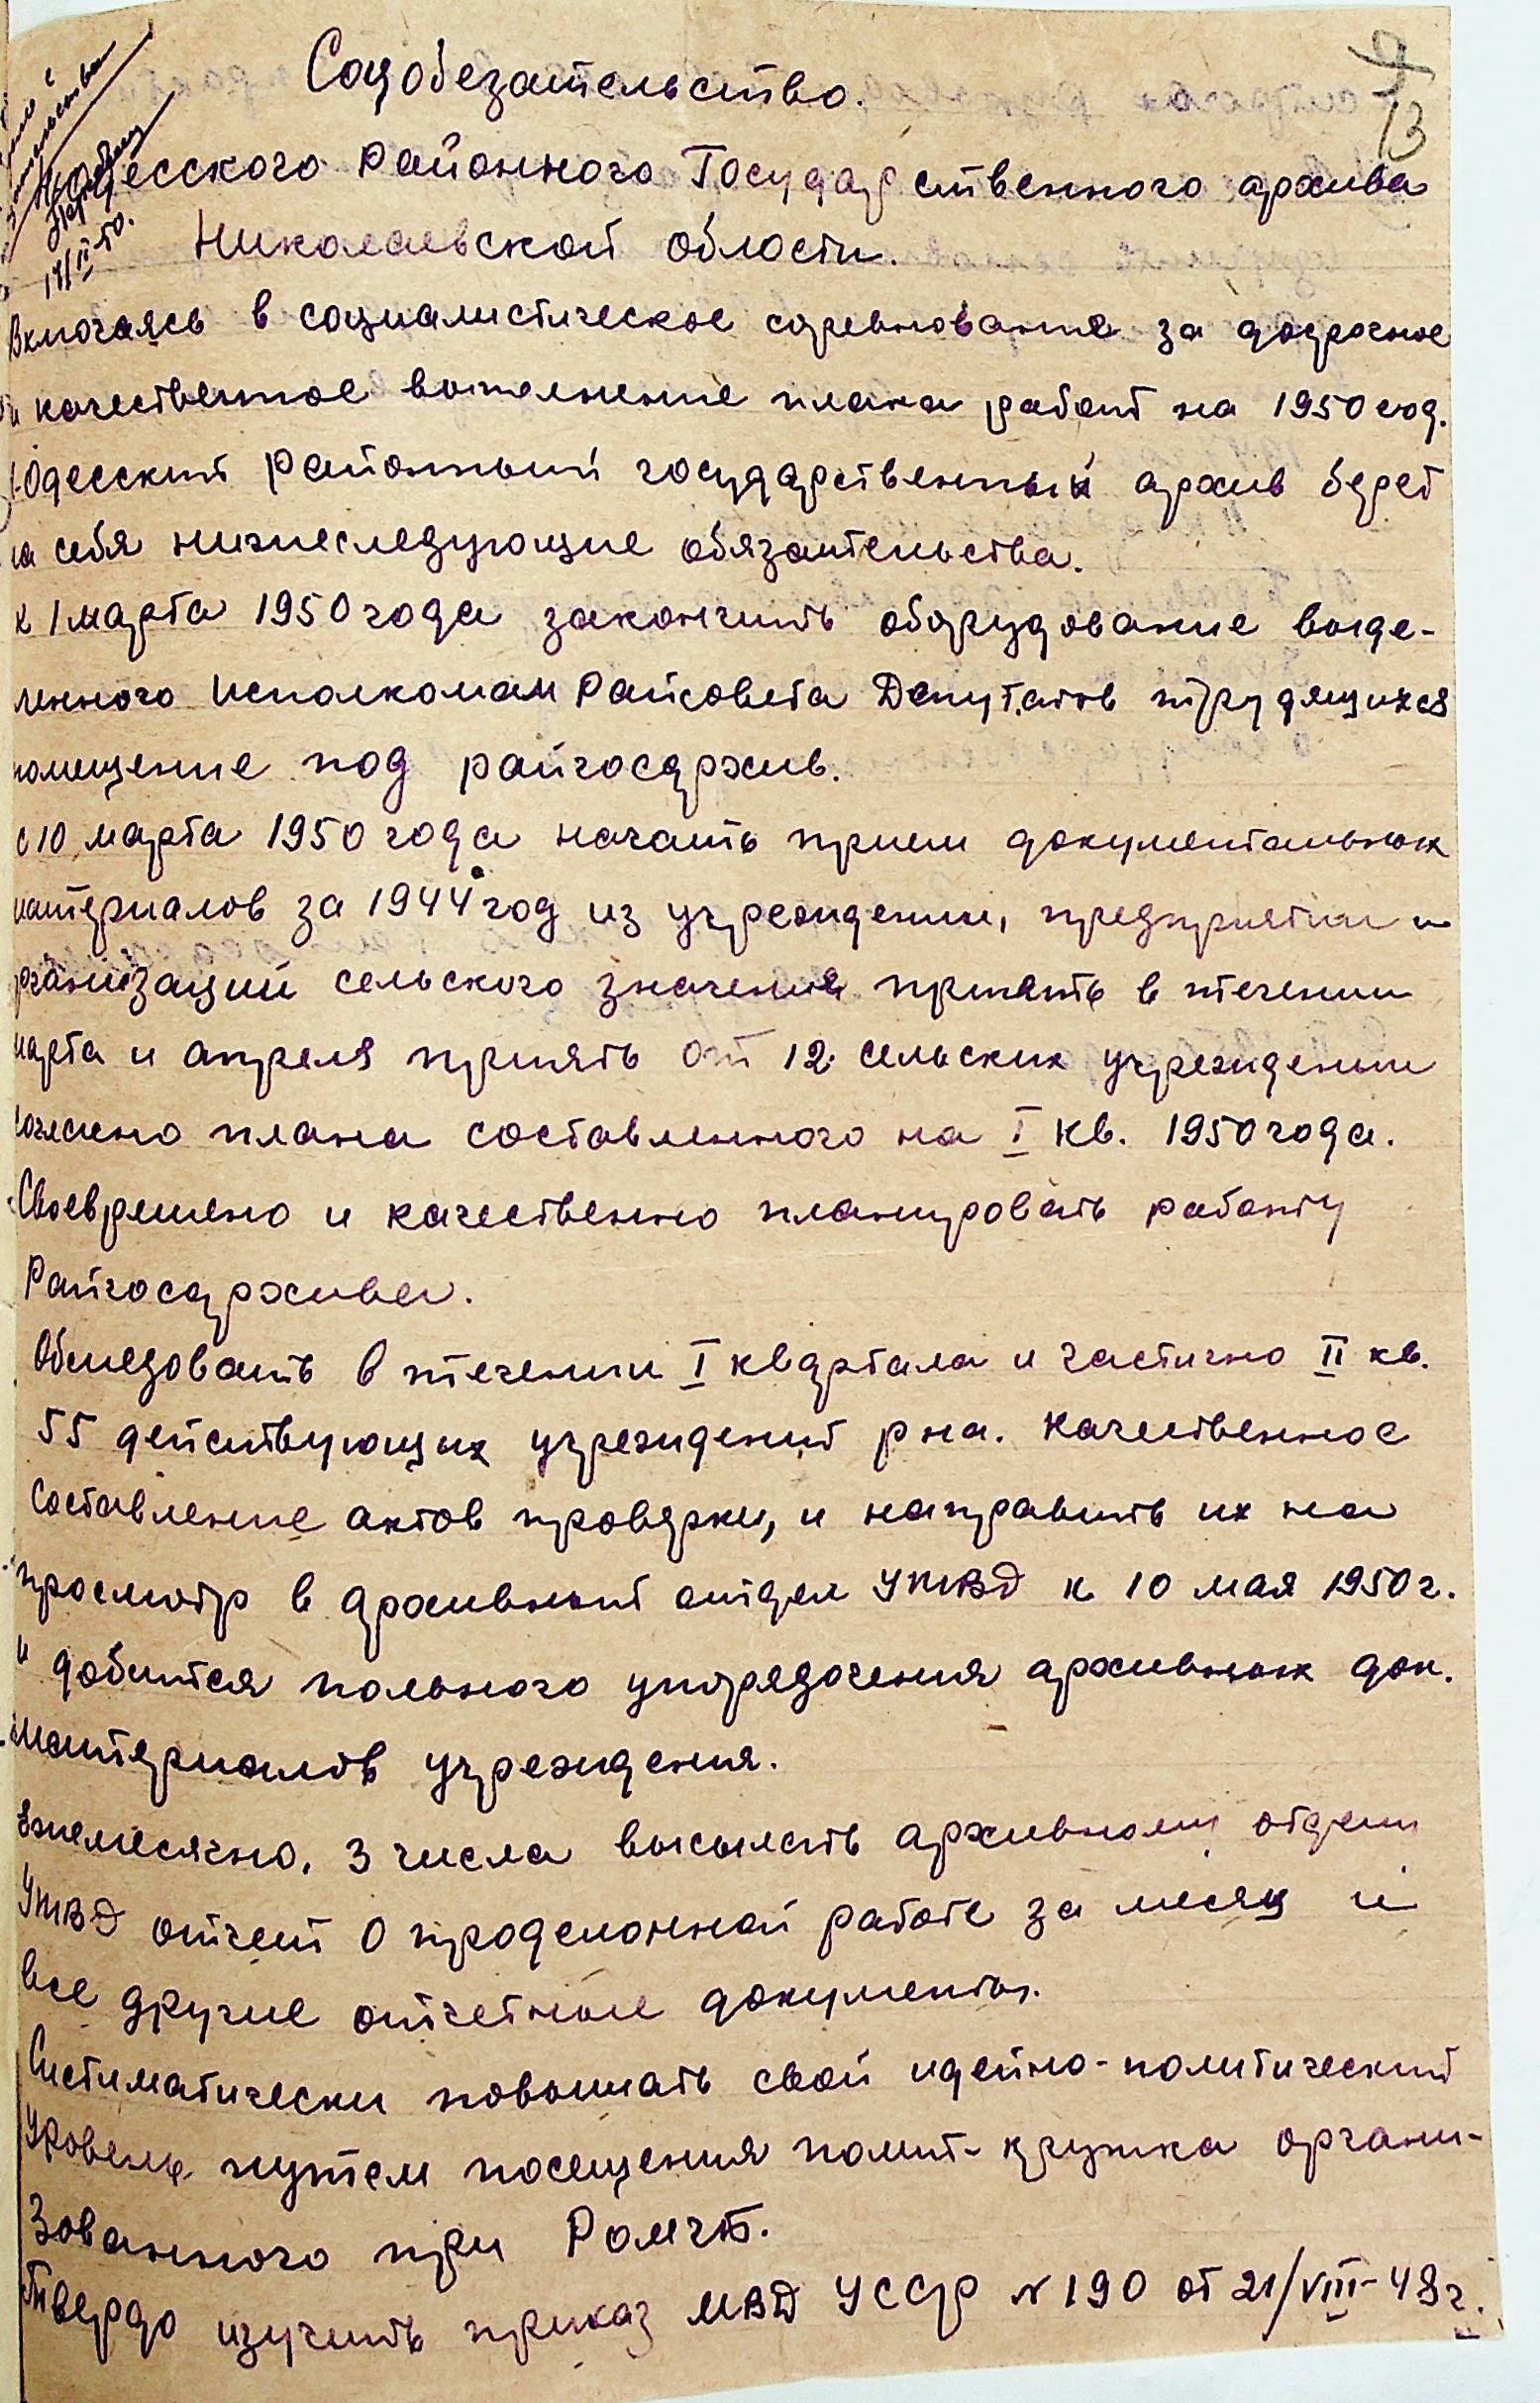 9
13
17/II 50.
Соцобезательство.
Н-Одесского Районного Государственного архива
Николаевской области.
Включаясь в социалистическое соревнования за досрочное
и качественное выполнение плана работ на 1950 год.
Н-Одесский районный государственный архив берет
на себя нижеследующие обязательства.
К 1 марта 1950 года закончить оборудование выде-
ленного исполкомам Райсовета Депутатов трудящихся
помещение под райгосархив.
С 10 марта 1950 года начать прием документальных
материалов за 1944 год из учреждении, предприятии и
организаций сельского значения принять в течении
марта и апреля принять от 12 сельских учреждении
согласно плана составленного на I кв. 1950 года.
Своевремено и качественно планировать работу
Райгосархива.
Обследовать в течении I квартала и частично II кв.
55 действующих учреждений р на. Качественное
составление актов проверки, и направить их на
просмотр в архивный отдел УМВД к 10 мая 1950 г.
и добится полного упорядочения архивных док.
материалов учреждения.
Ежемесячно, 3 числа высылать архивному отделу
УМВД отчет о проделанной работе за месяц и
все другие отчетные документы.
Систиматически повышать свой идейно-политический
уровень путем посещения полит-кружка органи-
зованного при
Твердо изучить приказ МВД УССР № 190 от 21/VIII-48 г.